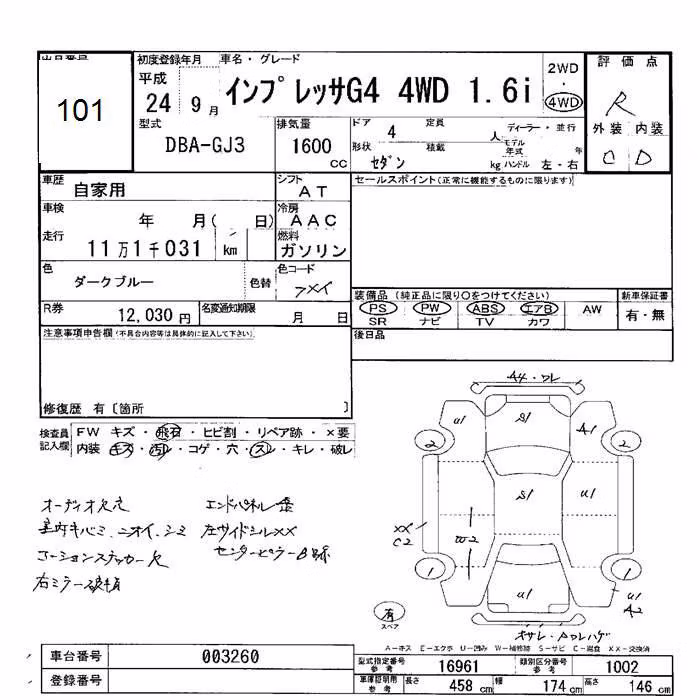 出品番号
101
初度登録年月
平成
24 9月
車名・グレード
インプレッサG4 4WD 1.6i
2WD
・
4WD
評価点
R
外装 内装
C D
型式
DBA-GJ3
排気量
1600
cc
ドア 4 定員 人
形状 セダン 積載 kg
ディーラー・並行
モデル年式 年
ハンドル 左・右
車歴
自家用
シフト
AT
車検
年 月( 日)
冷房
AAC
走行
11万1千031 km
燃料
ガソリン
色
ダークブルー
色替
色コード
R券
12,030円
名変通知期限
月 日
セールスポイント(正常に機能するものに限ります)
装備品(純正品に限り○をつけてください)
PS PW ABS エアB AW
SR ナビ TV カワ
新車保証書
有・無
後日品
注意事項申告欄(不具合内容等は具体的に記入して下さい)
修復歴 有〔箇所 〕
検査員記入欄
FW キズ・飛石・ヒビ割・リペア跡・×要
内装 キズ・汚レ・コゲ・穴・スレ・キレ・破レ
オーディオ欠品
室内キバミ、ニオイ、シミ
コーションステッカー欠
右ミラー破損
エンドパネル歪
左サイドシルXX
センターピラーB跡
A4・ワレ
U1
S1
A1
2
2
S1
U1
XX
C2
W2
1
1
U1
U1
A2
有
スペア
A-キズ E-エクボ U-凹み W-補修跡 S-サビ C-腐食 XX-交換済
車台番号
003260
登録番号
型式指定番号
参考
16961
類別区分番号
参考
1002
車庫証明用
参考
長さ 458 cm 幅 174 cm 高さ 146 cm